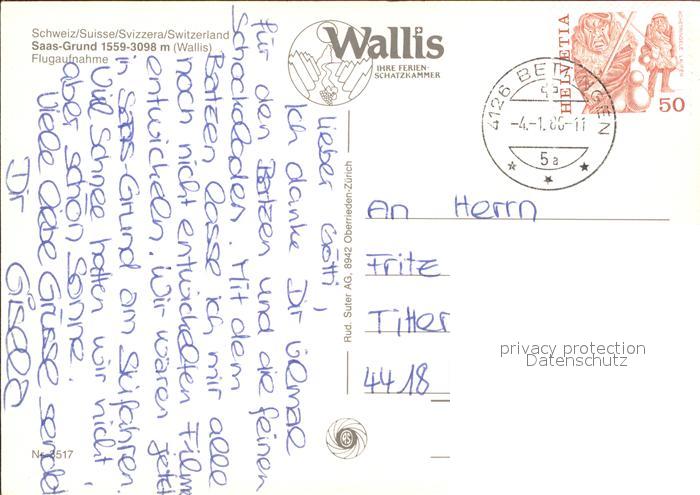 Schweiz/Suisse/Svizzera/Switzerland
Saas-Grund 1559-3098 m (Wallis)
Flugaufnahme
Wallis
IHRE FERIEN-
SCHATZKAMMER
HELVETIA
50
4126 BETTINGEN
-4.-1.86-11
5a
Lieber Götti,
Ich danke Dir vielmal
für den Batzen und die feinen
Schockoladen. Mit dem
Batzen lasse ich mir alle
noch nicht entwickelten Filme
entwickeln. Wir waren jetzt
in Saas-Grund am Skifahren.
Viel Schnee hatten wir nicht,
aber schön Sonne.
Viele liebe Grüsse sendet
Dir
Gisela
Rud. Suter AG, 8942 Oberrieden-Zürich
An Herrn
Fritz
Titter
4418
privacy protection
Datenschutz
Nr. 3517